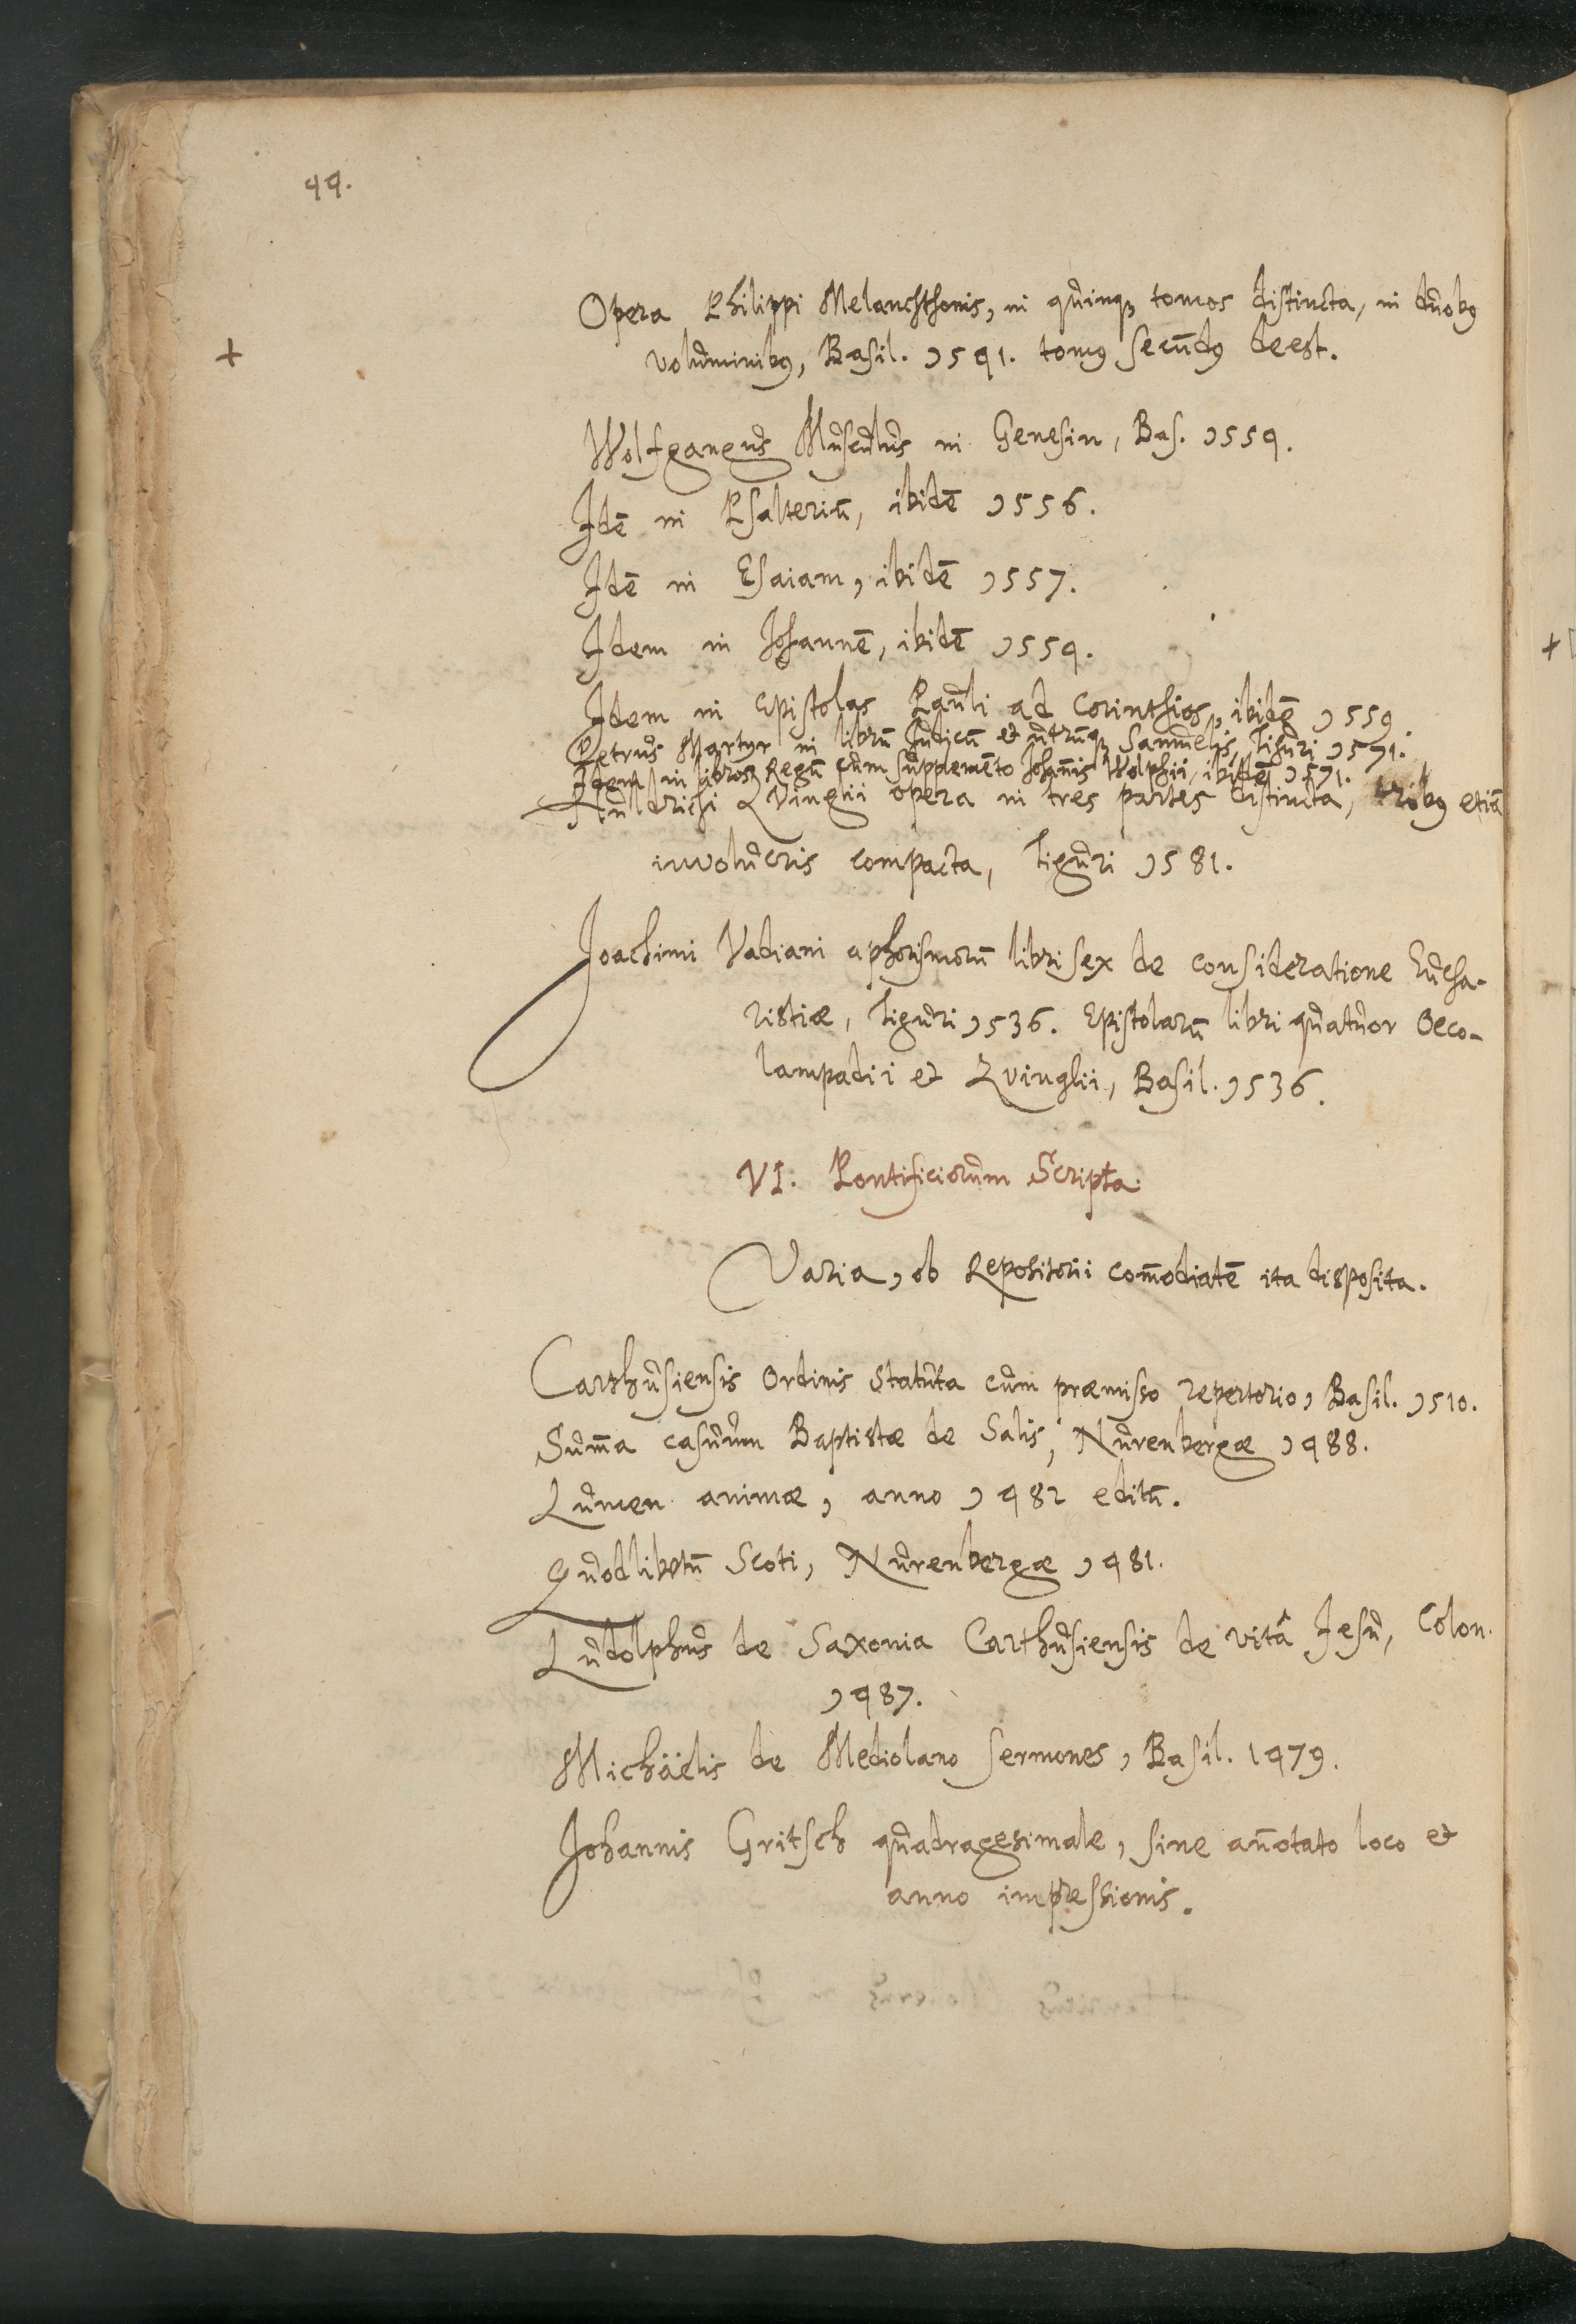 44.
Opera Philippi Melanchthonis, in quinq; tomos distincta, in duobꝰ
+ voluminibꝰ, Basil. 1541. tomꝰ secūdꝰ deest.
Wolfgangus Musculus in Genesin, Bas. 1554.
Idē in Psalteriū, ibidē 1556.
Idē in Esaiam, ibidē 1557.
Idem in Johannē, ibidē 1554.
Idem in Epistolas Pauli ad Corinthios, ibidē 1559.
Petrus Martyr in librū Judicū et utrūq; Samuelis, Tiguri 1571.
Idem in libros Regū cum supplemēto Johan̄is Wolphii, ibidē 1571.
Huldrichi Zvinglii opera in tres partes distincta, tribꝰ etiā
involucris compacta, Tiguri 1581.
Joachimi Vadiani aphorismorū libri sex de consideratione Eucha-
ristiæ, Tiguri 1536. Epistolarū libri quatuor Oeco-
lampadii et Zvinglii, Basil. 1536.
VI. Pontificiorum Scripta.
Varia, ob Repositorii com̄odiatē ita disposita.
Carthusiensis Ordinis Statuta cum præmisso repertorio, Basil. 1510.
Sum̄a casuum Baptistæ de Salis, Nurenbergæ 1488.
Lumen animæ, anno 1482 editū.
Quodlibetū Scoti, Nurenbergæ 1481.
Ludolphus de Saxonia Carthusiensis de vitâ Jesu, Colon.
1487.
Michäelis de Mediolano sermones, Basil. 1479.
Johannis Gritsch quadragesimale, sine an̄otato loco et
anno impressionis.